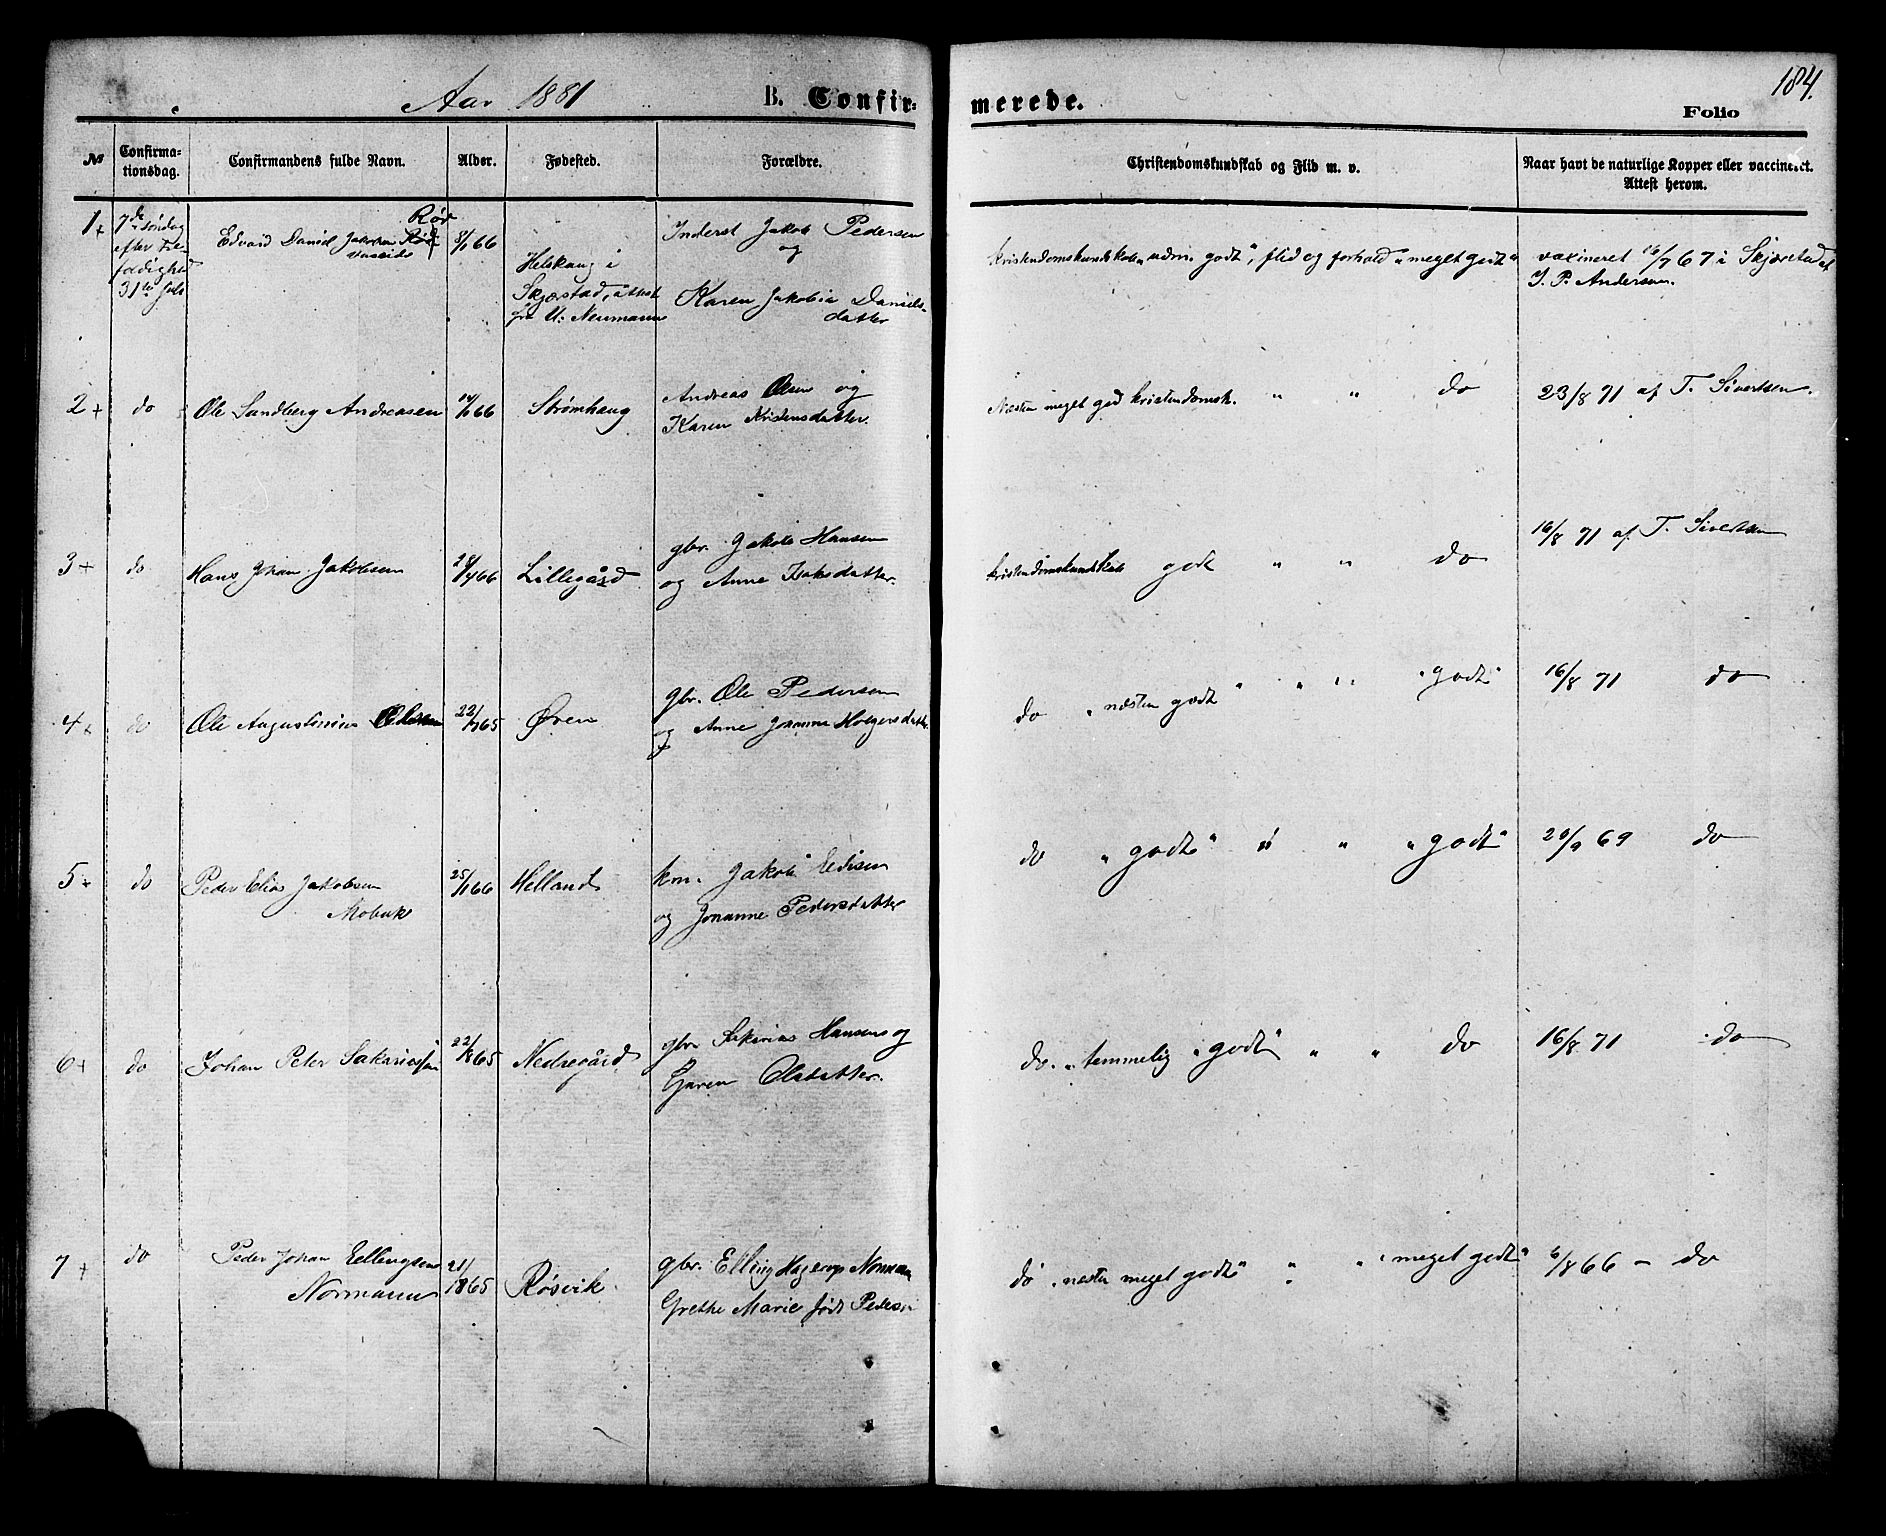 184.
Aar 1881 B. Confirmerede. Folio
№ Confirmationsdag. Confirmandens fulde Navn. Alder. Fødested. Forældre. Christendomskundskab og Flid m. v. Naar havt de naturlige Kopper eller vaccineret. Attest herom.
1+ 7de søndag efter Trefoldighed 31te Juli
Edvard Daniel Jakobsen Røv
8/1 66
i Skjerstad, attest fra U. Neumann
Inderst Jakob Pedersen
og
Karen Jakobia Danielsdatter
kristendomskundskab "udm. godt", flid og forhold "meget godt"
vaxineret 16/7 67 i Skjerstad af
J. P. Andersen.
2+ do Ole Sandberg Andreasen 14/1 66 Strømhaug
Andreas Olsen og
Karen Kristensdatter.
Næsten meget god kristendomsk. " " do
23/8 71 af T. Sivertsen.
3+ do Hans Johan Jakobsen 28/4 66 Lillegård
gbr. Jakob Hansen
og Anne Isaksdatter.
kristendomskundskab godt " " do
16/8 71 af T. Sivertsen
4+ do Ole Augustinius Olsen 22/9 65 Øren
gbr. Ole Pedersen
og Anne Johanna Holgersdatter.
do "næsten godt" " " "godt"
16/8 71 do
5+ do Peder Elias Jakobsen
Mobæk
25/1 66 Helland
km. Jakob
og Johanne Pedersdatter
do "godt" " " "godt"
29/9 69 do
6+ do Johan Peter Sakariassen 22/8 65 Nedregård
gbr. Sakarias Hansen og
Guren Olsdatter.
do. "temmelig godt" " " do
16/8 71 do
7+ do Peder Johan Ellingsen
Normann
21/1 65 Røsvik
gbr. Elling Hagerup Normann
Grethe Marie født Pedersen
do "næsten meget godt" " " "meget godt"
6/8 66 – do